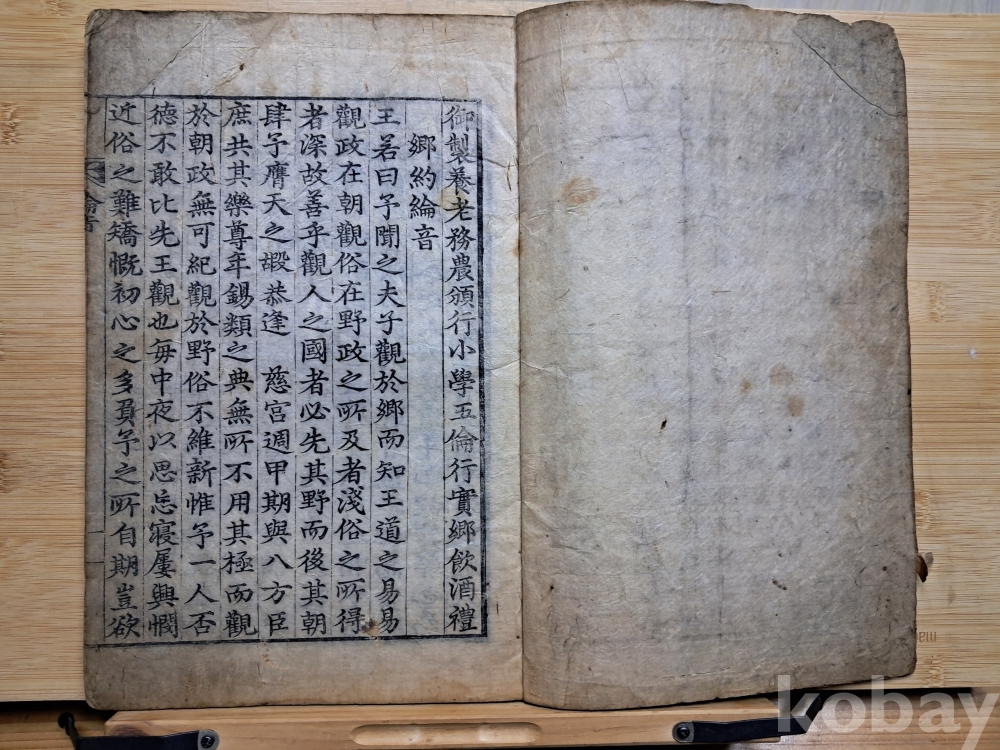 御製養老務農頒行小學五倫行實鄉飲酒禮
鄉約綸音
王若曰予聞之夫子觀於鄉而知王道之易易
觀政在朝觀俗在野政之所及者淺俗之所得
者深故善乎觀人之國者必先其野而後其朝
肆予膺天之嘏恭逢 慈宮週甲期與八方臣
庶共其樂尊年錫類之典無所不用其極而觀
於朝政無可紀觀於野俗不維新惟予一人否
德不敢比先王觀也每中夜以思忘寢屢興憪
近俗之難矯慨初心之多負予之所自期豈欲
綸音
kobay